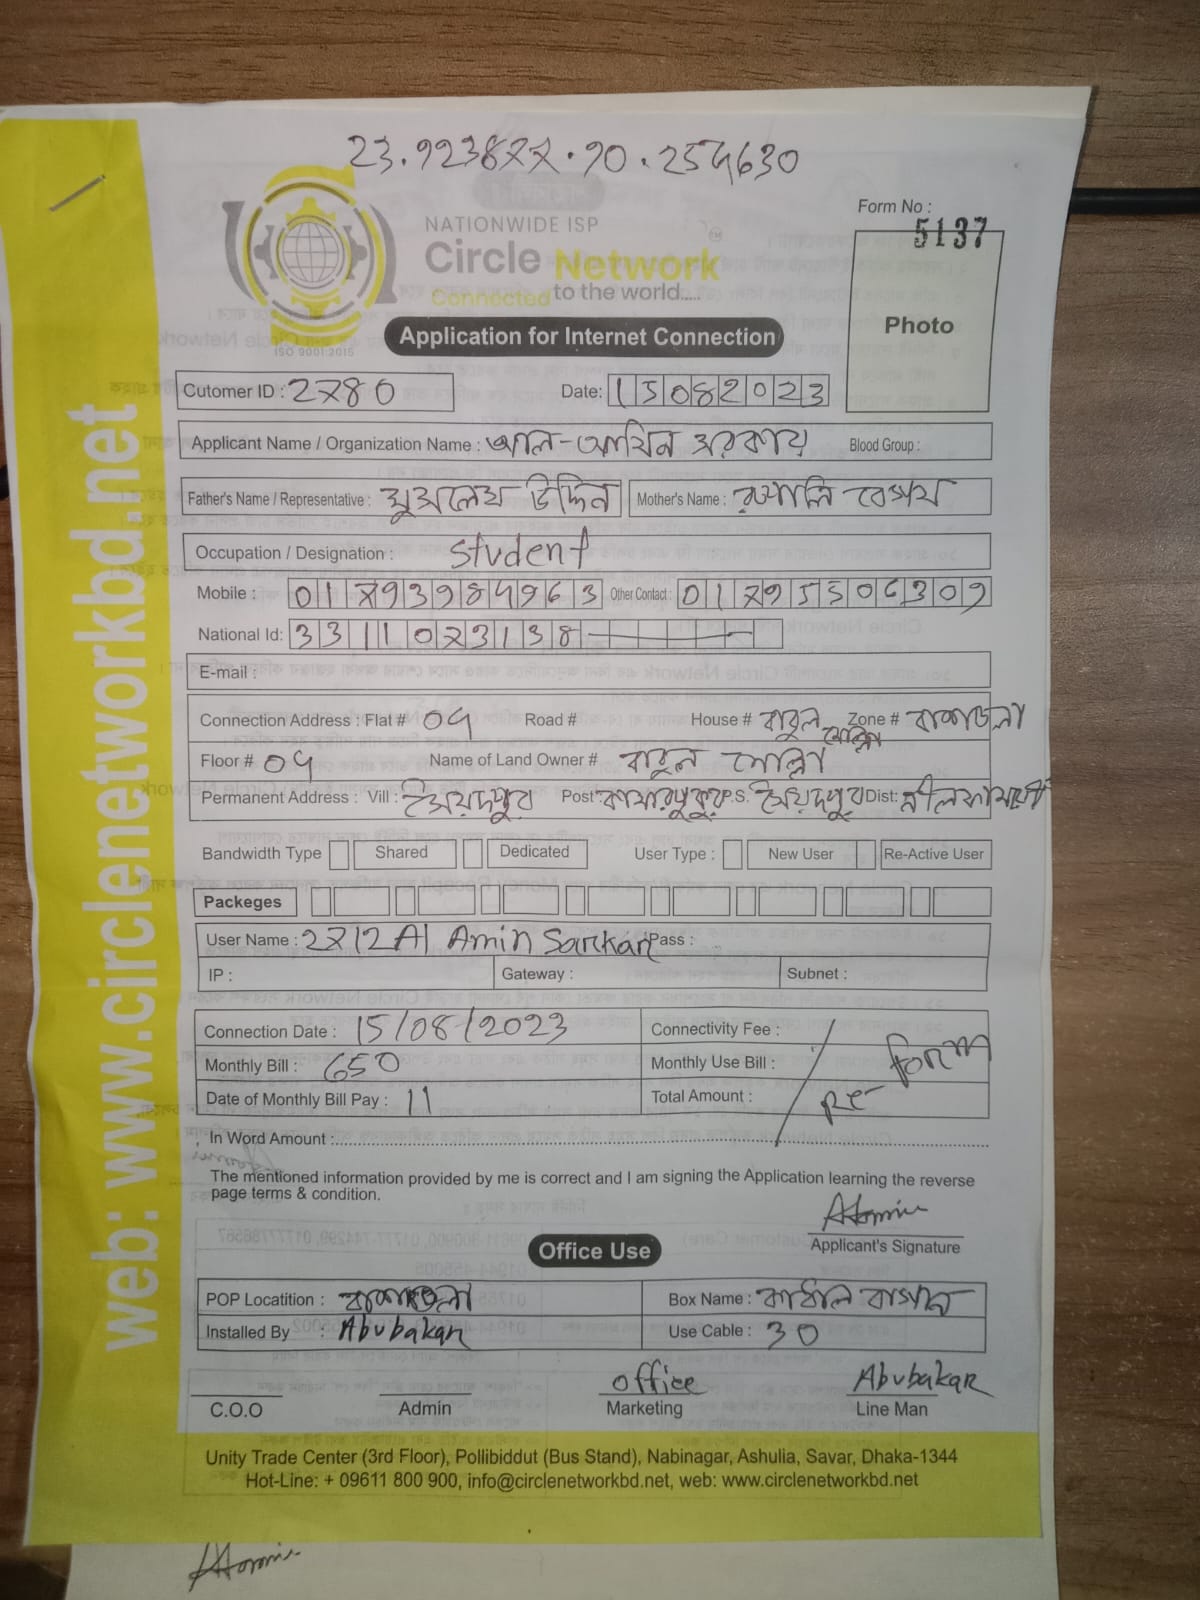 23.923877.90.254630
Form No :
5137
NATIONWIDE ISP
Circle Network
Connected to the world.....
ISO 9001:2015
Photo
Application for Internet Connection
Cutomer ID : 2780 Date: 15082023
Applicant Name / Organization Name : আল-আমিন সরকার Blood Group :
Father's Name / Representative : মুসলেম উদ্দিন Mother's Name : রুপালি বেগম
Occupation / Designation : Student
Mobile : 01793984963 Other Contact : 01795506309
National Id: 3311073138
E-mail :
Connection Address : Flat # 04 Road # House # বাবুল মোল্লা Zone #
Floor # 04 Name of Land Owner # বাবুল মোল্লা
Permanent Address : Vill : সৈয়দপুর Post: কামারপুকুর P.S. সৈয়দপুর Dist: নীলফামারী
Bandwidth Type Shared Dedicated User Type : New User Re-Active User
Packeges
User Name : 2712 Al Amin Sarkar Pass :
IP : Gateway : Subnet :
Connection Date : 15/08/2023 Connectivity Fee :
Monthly Bill : 650 Monthly Use Bill :
Date of Monthly Bill Pay : 11 Total Amount :
Re-form
In Word Amount :
The mentioned information provided by me is correct and I am signing the Application learning the reverse
page terms & condition.
Applicant's Signature
Office Use
POP Locatition : Box Name : কাঠাল বাগান
Installed By : Abubakar Use Cable : 30
office Abubakar
C.O.O Admin Marketing Line Man
Unity Trade Center (3rd Floor), Pollibiddut (Bus Stand), Nabinagar, Ashulia, Savar, Dhaka-1344
Hot-Line: + 09611 800 900, info@circlenetworkbd.net, web: www.circlenetworkbd.net
web: www.circlenetworkbd.net